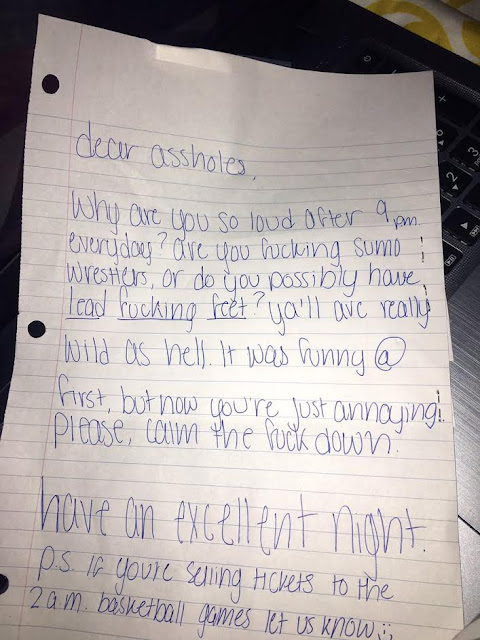 dear assholes,
Why are you so loud after 9 pm.
everyday? are you fucking sumo
wrestlers, or do you possibly have
lead fucking feet? ya'll are really
wild as hell. It was funny @
first, but now you're just annoying!
please, calm the fuck down.
have an excellent night.
p.s. if you're selling tickets to the
2 a.m. basketball games let us know;;
+
6
2
3